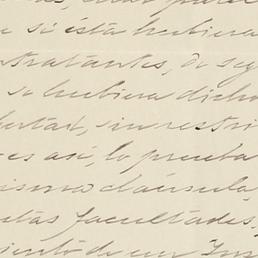 si ésta hubiera
tratantes, de seg
se hubiera dicho
bertad, sin restri
es así, lo prueba
misma cláusula,
estas facultades,
miento de un Ins